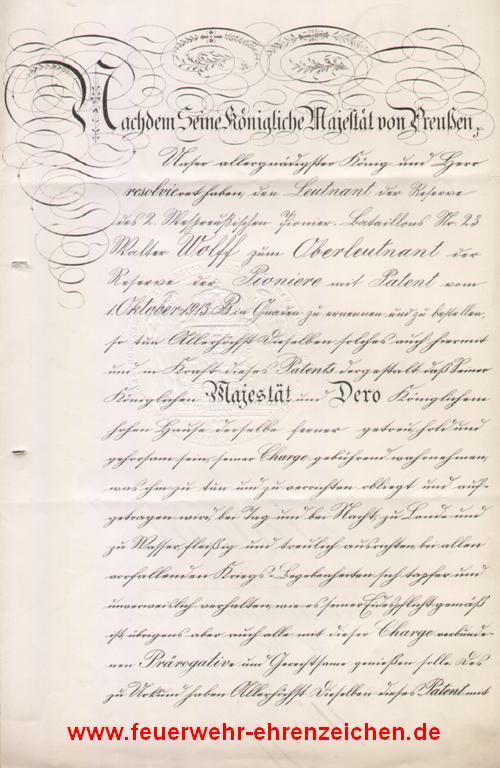 Nachdem Seine Königliche Majestät von Preußen,
Unser allergnädigster König und Herr
resolvieret haben, den Leutnant der Reserve
des 2. Westpreußischen Pionier-Bataillons Nr. 23
Walter Wolff zum Oberleutnant der
Reserve der Pioniere mit Patent vom
1. Oktober 1913 B in Gnaden zu ernennen und zu bestellen,
so tun Allerhöchst Dieselben solches auch hiermit
und in Kraft dieses Patents dergestalt daß Seiner
Königlichen Majestät und Dero Königlichem
hohen Hause derselbe ferner getreu, hold und
gehorsam sein, seiner Charge gebührend wahrnehmen,
was ihm zu tun und zu verrichten obliegt und auf-
getragen wird, bei Tag und bei Nacht, zu Lande und
zu Wasser, fleißig und treulich ausrichten, bei allen
vorfallenden Kriegs-Begebenheiten sich tapfer und
unverweislich verhalten, wie es seiner Eidespflicht gemäß
ist, übrigens aber auch alle mit dieser Charge verbunde-
nen Prärogative und Gerechtsame genießen solle. Des
zu Urkund haben Allerhöchst Dieselben dieses Patent mit
www.feuerwehr-ehrenzeichen.de